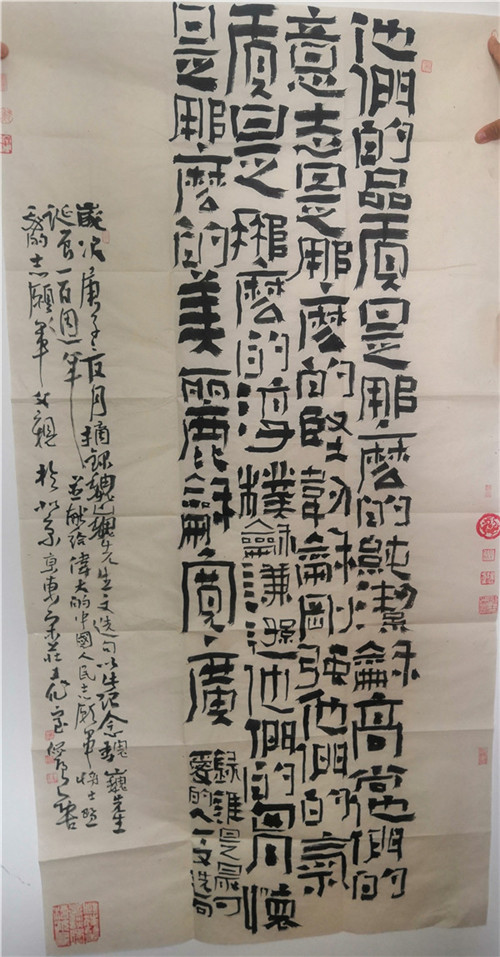 他們的品質是那麼的純潔龢高尚他們的
意志是那麼的堅韌龢剛強他們的氣
質是那麼的淳樸龢謙遜他們的胸懷
是那麼的美麗龢寬廣
録誰是最可
愛的人一文選句
歲次庚子夏月摘録魏巍先生文選句以紀念魏巍先生
誕辰一百週年並献給偉大的中國人民志願軍將士暨
志願軍父親於北京京東宋莊